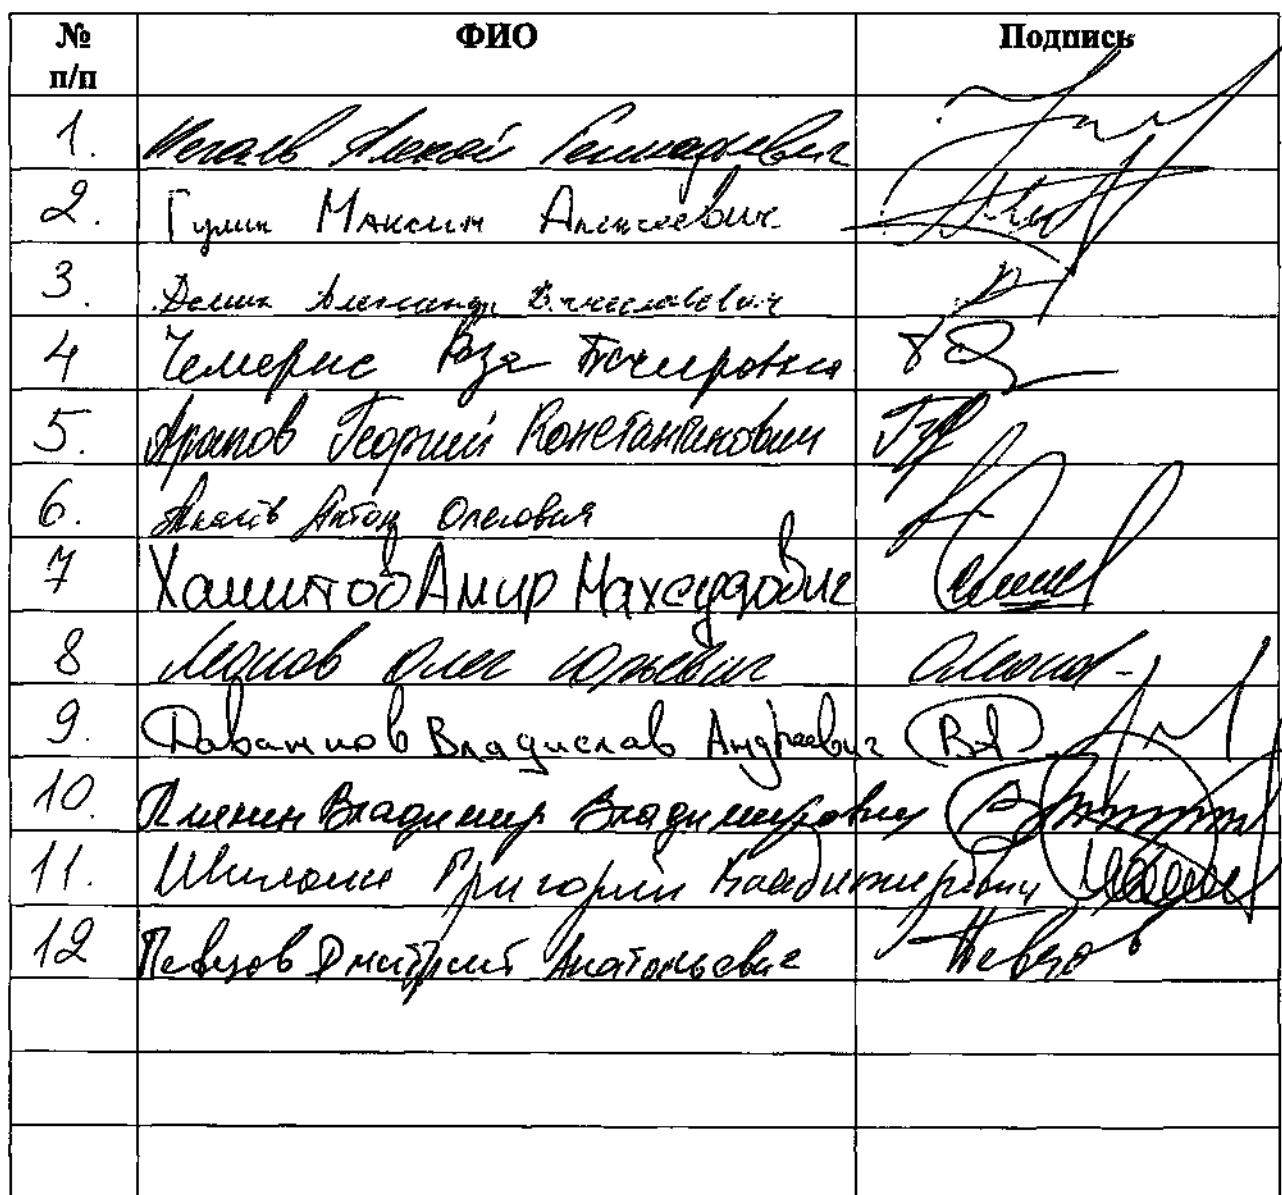 № п/п ФИО Подпись
1. Нечаев Алексей Геннадьевич
2. Гулин Максим Алексеевич
3. Демин Александр Вячеславович
4 Чемерис Роза Басировна
5. Арапов Георгий Константинович
6. Ткачёв Антон Олегович
7 Хамитов Амир Махсудович
8 Леонов Олег Юрьевич
9. Даванков Владислав Андреевич
10. Плякин Владимир Владимирович
11. Шилкин Григорий Владимирович
12 Певцов Дмитрий Анатольевич Певцов